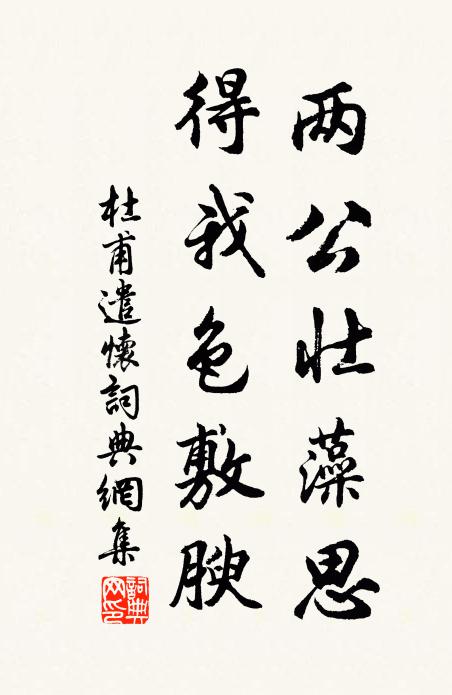 两公壮藻思
得我色敷腴
杜甫遣懷詞典網集
詞典网印